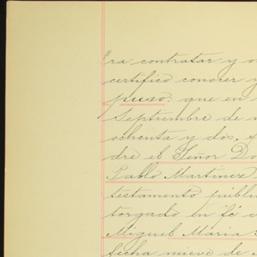 ra contratar y o
certifico conocer y
puso: que en
Septiembre de
ochenta y dos,
dre el Señor Do
Pablo Martinez
testamento públi
torgado en fé
Miguel Maria
fecha nueve de